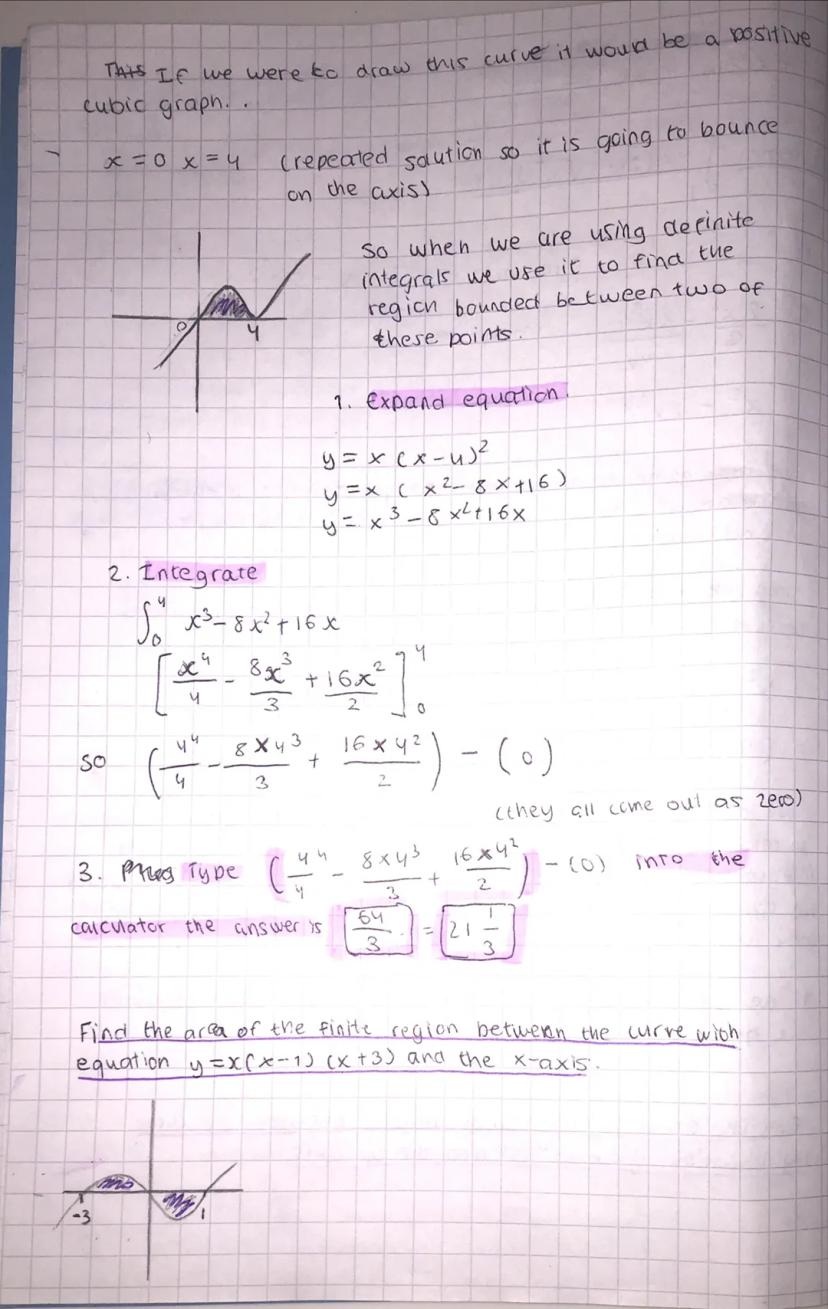 If we were to draw this curve it would be a positive
cubic graph. .
x = 0 x = 4 (repeated solution so it is going to bounce
on the axis)
So when we are using definite
integrals we use it to find the
region bounded between two of
these points.
0 4
1. Expand equation.
y = x (x-4)²
y = x ( x² - 8x+16 )
y = x³ - 8x²+16x
2. Integrate
∫₀⁴ x³- 8x² + 16x
[x⁴/4 - 8x³/3 + 16x²/2]₀⁴
so (4⁴/4 - 8×4³/3 + 16×4²/2) - (0)
(they all come out as zero)
3. Type (4⁴/4 - 8×4³/3 + 16×4²/2) - (0) into the
calculator the answer is 64/3 = 21 1/3
Find the area of the finite region between the curve with
equation y=x(x-1) (x+3) and the x-axis.
-3 1